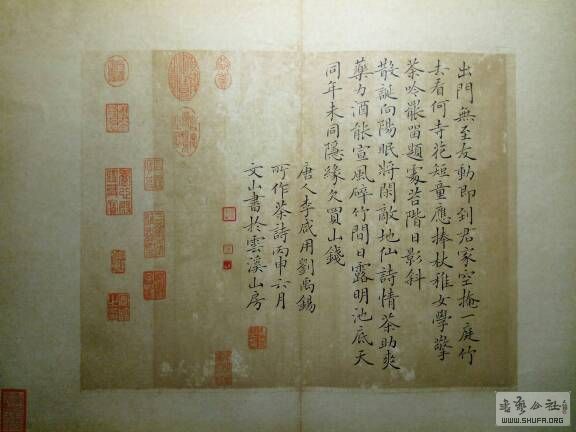 出門無至友動即到君家空掩一庭竹
去看何寺花短童應捧杖稚女學擎
茶吟罷留題處苔階日影斜
散誕向陽眠將閑敵地仙詩情茶助爽
藥力酒能宣風碎竹間日露明池底天
同年未同隱緣欠買山錢
唐人李咸用劉禹錫
所作茶詩丙申六月
文山書於雲溪山房
書藝公社
WWW.SHUFA.ORG